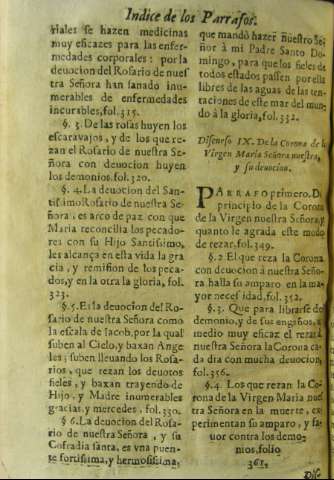 Indice de los Parrafos.
riales se hazen medicinas
muy eficazes para las enfer-
medades corporales: por la
deuocion del Rosario de nues
tra Señora han sanado inu-
merables de enfermedades
incurables, fol. 315.
§. 3. De las rosas huyen los
escaravajos, y de los que re-
zan el Rosario de nuestra Se-
ñora con deuocion huyen
los demonios. fol. 320.
§. 4. La deuocion del San-
tissimo Rosario de nuestra Se-
ñora, es arco de paz con que
Maria reconcilia los pecado-
res con su Hijo Santissimo,
les alcança en esta vida la gra
cia, y remision de los peca-
dos, y en la otra la gloria, fol.
323.
§. 5. Es la deuocion del Ro-
sario de nuestra Señora como
la escala de Iacob, por la qual
suben al Cielo, y baxan Ange
les; suben lleuando los Rosa-
rios, que rezan los deuotos
fieles, y baxan trayendo de
Hijo, y Madre inumerables
gracias, y mercedes, fol. 330.
§ 6. La deuocion del Rosa-
rio de nuestra Señora, y su
Cofradia santa, es vna puen-
te fortissima, y hermosissima,
que mandò hazer nuestro Se
ñor à mi Padre Santo Do-
mingo, para que los fieles de
todos estados passen por ella
libres de las aguas de las ten-
taciones de este mar del mun-
do à la gloria, fol. 332.
Discurso IX. De la Corona de la
Virgen Maria Señora nuestra,
y su deuocion.
PARRAFO primero. Del
principio de la Corona
de la Virgen nuestra Señora, y
quanto le agrada este modo
de rezar, fol. 349.
§. 2 El que reza la Corona
con deuocion à nuestra Seño-
ra halla su amparo en la ma-
yor necessidad, fol. 352.
§. 3. Que para librarse de
demonio, y de sus engaños, es
medio muy eficaz el rezar à
nuestra Señora la Corona ca-
da dia con mucha deuocion,
fol. 356.
§. 4. Los que rezan la Co-
rona de la Virgen Maria nues
tra Señora en la muerte, ex-
perimentan su amparo, y fa-
uor contra los demo-
nios, folio
361.
Dis-